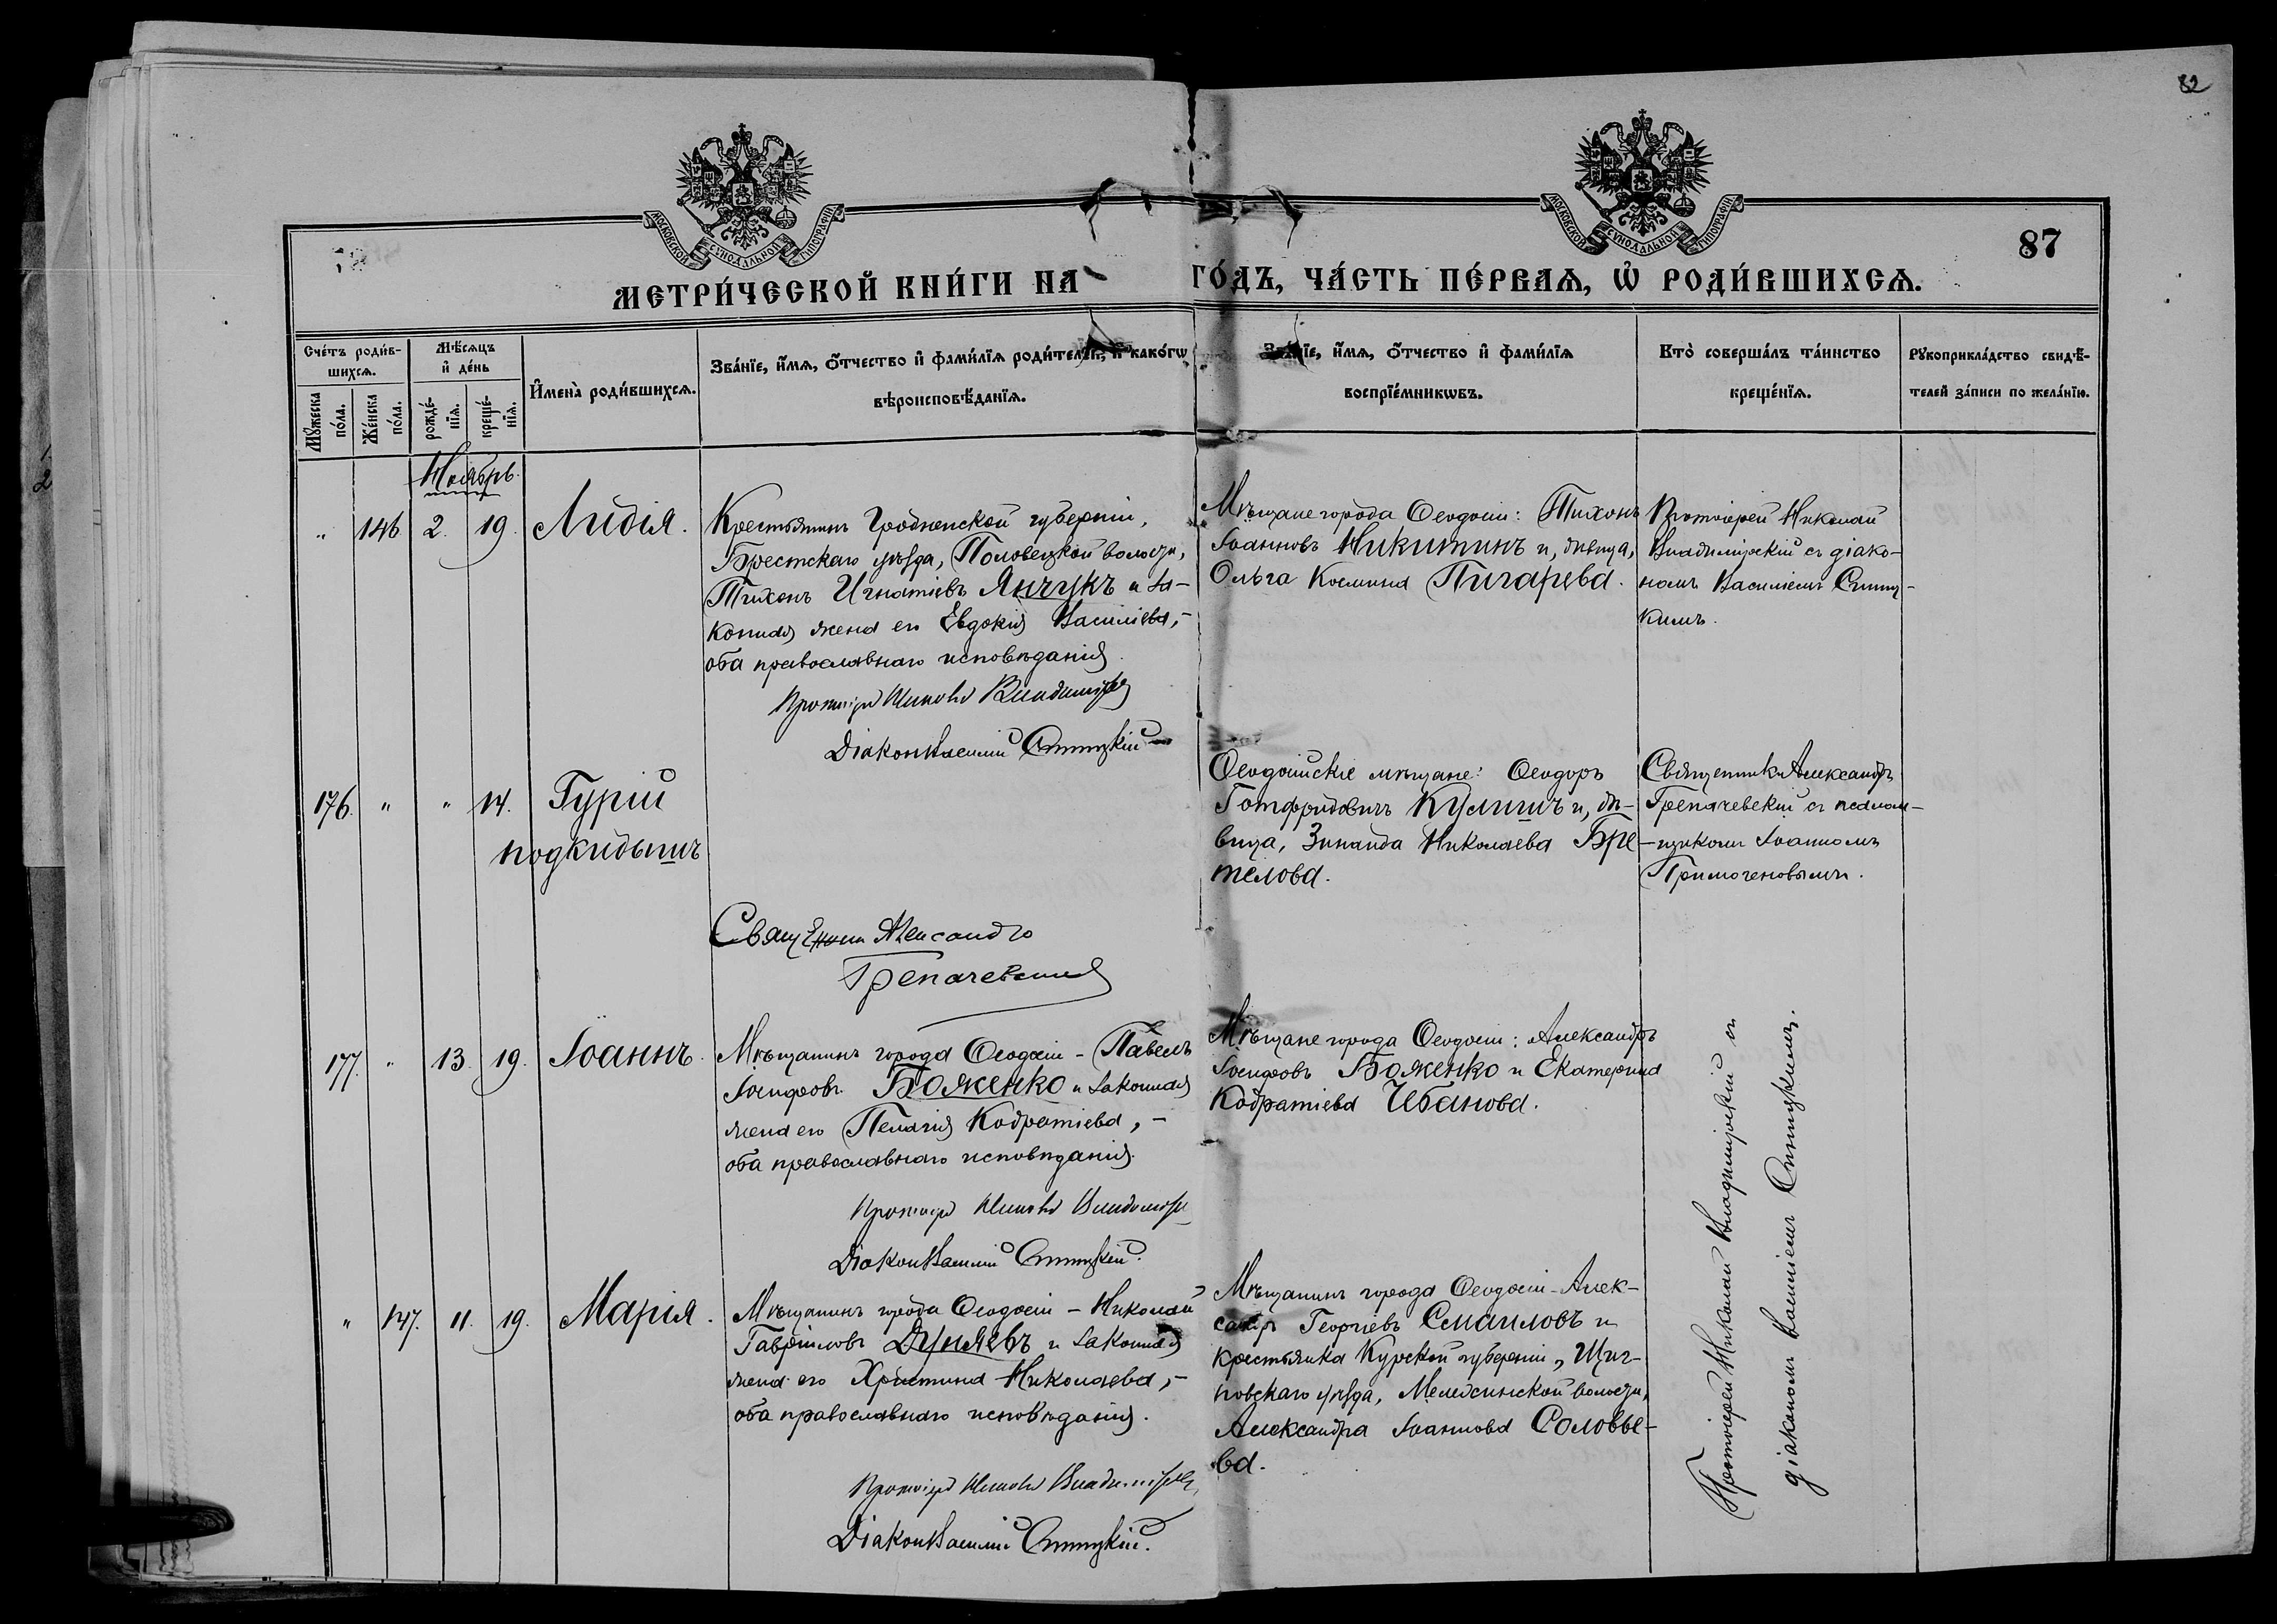 82
МОСКОВСКОЙ СУНОДАЛЬНОЙ ТИПОГРАФІИ
МОСКОВСКОЙ СУНОДАЛЬНОЙ ТИПОГРАФІИ
87
МЕТРИ́ЧЕСКОЙ КНИ́ГИ НА ГО́ДЪ, ЧА́СТЬ ПЕ́РВАѦ, Ѡ҆ РОДИ́ВШИХСѦ.
Сче́тъ роди́в-
шихсѧ.
Мꙋ́жеска по́ла.
Же́нска по́ла.
Мѣ́сѧцъ и҆ де́нь
рожде́-
нїѧ.
креще́-
нїѧ.
И҆мена̀ роди́вшихсѧ.
Зва́нїе, и҆́мѧ, ѻ҆́тчество и҆ фами́лїѧ роди́телей, и҆ како́гѡ
вѣроисповѣ́данїѧ.
Зва́нїе, и҆́мѧ, ѻ҆́тчество и҆ фами́лїѧ
воспрїе́мникѡвъ.
Кто̀ соверша́лъ та́инство
креще́нїѧ.
Рꙋкоприкла́дство свидѣ́-
телей за́писи по жела́нїю.
Ноябрь.
" 146 2. 19. Лидія.
Крестьянинъ Гродненской губерніи,
Брестскаго уѣзда, Половецкой волости,
Тихонъ Игнатіевъ Янчукъ и за-
конная жена его Евдокія Василіева,-
оба православнаго исповѣданія.
Протоіерей Николай Владимірскій
Діаконъ Василій Ситницкій
Мѣщане города Ѳеодосіи: Тихонъ
Іоанновъ Никитинъ и, дѣвица,
Ольга Космина Пигарева.
Протоіерей Николай
Владимірскій съ діако-
номъ Василіемъ Ситниц-
кимъ.
176. " " 14. Гурій
подкидышъ
Священникъ Александръ
Трепачевскій
Ѳеодосійскіе мѣщане: Ѳеодоръ
Готфридовичъ Кулишъ и, дѣ-
вица, Зинаида Николаева Бре-
телова.
Священникъ Александръ
Трепачевскій съ псалом-
щикомъ Іоанномъ
177. " 13. 19. Іоаннъ.
Мѣщанинъ города Ѳеодосіи - Павелъ
Іосифовъ Боженко и законная
жена его Пелагія Кодратіева, -
оба православнаго исповѣданія.
Протоіерей Николай Владимірскій
Діаконъ Василій Ситницкій.
Мѣщане города Ѳеодосіи: Александръ
Іосифовъ Боженко и Екатерина
Кодратіева Чебанова.
Протоіерей Николай Владимірскій съ
діакономъ Василіемъ Ситницкимъ.
" 147. 11. 19. Марія.
Мѣщанинъ города Ѳеодосіи - Николай
Гавріиловъ Дуняевъ и законная
жена его Христина Николаева,-
оба православнаго исповѣданія.
Протоіерей Николай Владимірскій
Діаконъ Василій Ситницкій.
Мѣщанинъ города Ѳеодосіи - Алек-
сандръ Георгіевъ Смаиловъ и
крестьянка Курской губерніи, Щиг-
ровскаго уѣзда, волости,
Александра Іоаннова Соловье-
ва.